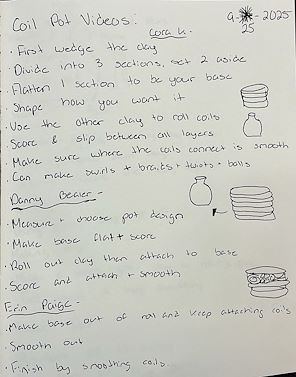 Coil Pot Videos:
Cora K.
9-25-2025
· First wedge the clay
· Divide into 3 sections, set 2 aside
· Flatten 1 section to be your base
· Shape how you want it
· Use the other clay to roll coils
· Score & slip between all layers
· Make sure where the coils connect is smooth
· Can make swirls + braids + twists + balls
Danny -
· Measure + choose pot design
· Make base flat + score
· Roll out clay then attach to base
· Score and attach + smooth
Erin Paige -
· Make base out of and keep attaching coils
· Smooth out
· Finish by smoothing coils.